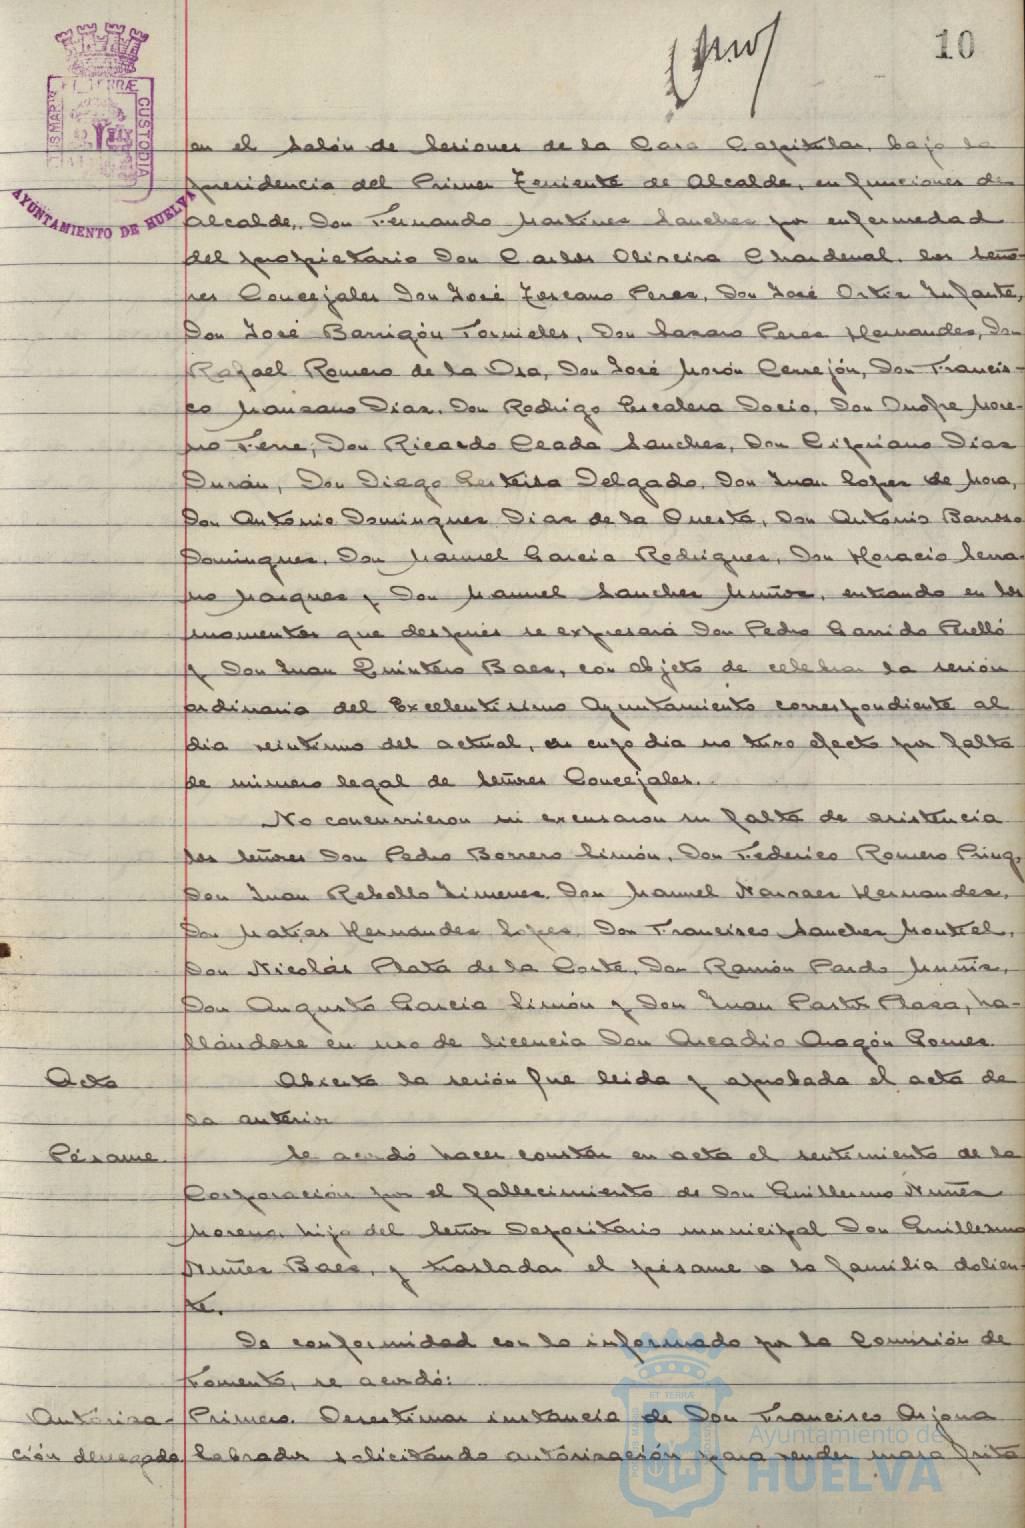 10
ET TERRÆ
CUSTODIA
AYUNTAMIENTO DE HUELVA
en el Salón de Sesiones de la Casa Capitular, bajo la
presidencia del Primer Teniente de Alcalde, en funciones de
Alcalde, Don Fernando Martinez Sanchez por enfermedad
del propietario Don Carlos Oliveira Chardenal, los Seño-
res Concejales Don José Toscano Perez, Don José Ortiz Infante,
Don José Barrigón Fornieles, Don Lazaro Perez Hernandez, Don
Rafael Romero de la Osa, Don José Morón Cerrejón, Don Francis-
co Manzano Diaz, Don Rodrigo Escalera Docio, Don Onofre More-
no Ferre, Don Ricardo Ceada Sanchez, Don Cipriano Diaz
Durán, Don Diego Delgado, Don Juan Lopez de Mora,
Don Antonio Dominguez Diaz de la Cuesta, Don Antonio Barroso
Dominguez, Don Manuel Garcia Rodriguez, Don Horacio Serra-
no Marquez y Don Manuel Sanchez Muñoz, entrando en los
momentos que después se expresará Don Pedro Garrido Perelló
y Don Juan Quintero Baez, con objeto de celebrar la sesión
ordinaria del Excelentisimo Ayuntamiento correspondiente al
dia veintiuno del actual, en cuyo dia no tuvo efecto por falta
de número legal de Señores Concejales.
No concurrieron ni excusaron su falta de asistencia
los Señores Don Pedro Borrero Limón, Don Federico Romero Pring,
Don Juan Rebollo Jimenez, Don Manuel Narvaez Hernandez,
Don Matias Hernandez Lopez, Don Francisco Sanchez Montiel,
Don Nicolás Plata de la Corte, Don Ramón Pardo Muñiz,
Don Augusto Garcia Limón y Don Juan Pastor Plaza, ha-
llándose en uso de licencia Don Arcadio Aragón Gomez.
Acta Abierta la sesión fue leida y aprobada el acta de
la anterior
Pésame Se acordó hacer constar en acta el sentimiento de la
Corporación por el fallecimiento de Don Guillermo Nuñez
Moreno, hijo del Señor Depositario municipal Don Guillermo
Nuñez Baez, y trasladar el pésame a la familia dolien-
te.
De conformidad con lo informado por la Comisión de
Fomento, se acordó:
Autoriza- Primero. Desestimar instancia de Don Francisco Arjona
ción denegada Labrador solicitando autorización para vender masa frita
ET TERRÆ
Ayuntamiento de
HUELVA